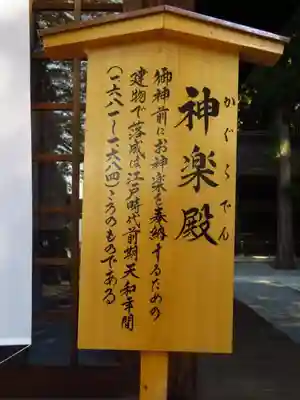 神楽殿
かぐらでん
御神前にお神楽を奉納するための
建物で落成は江戸時代前期天和年間
(一六八一〜一六八四)ころのものである